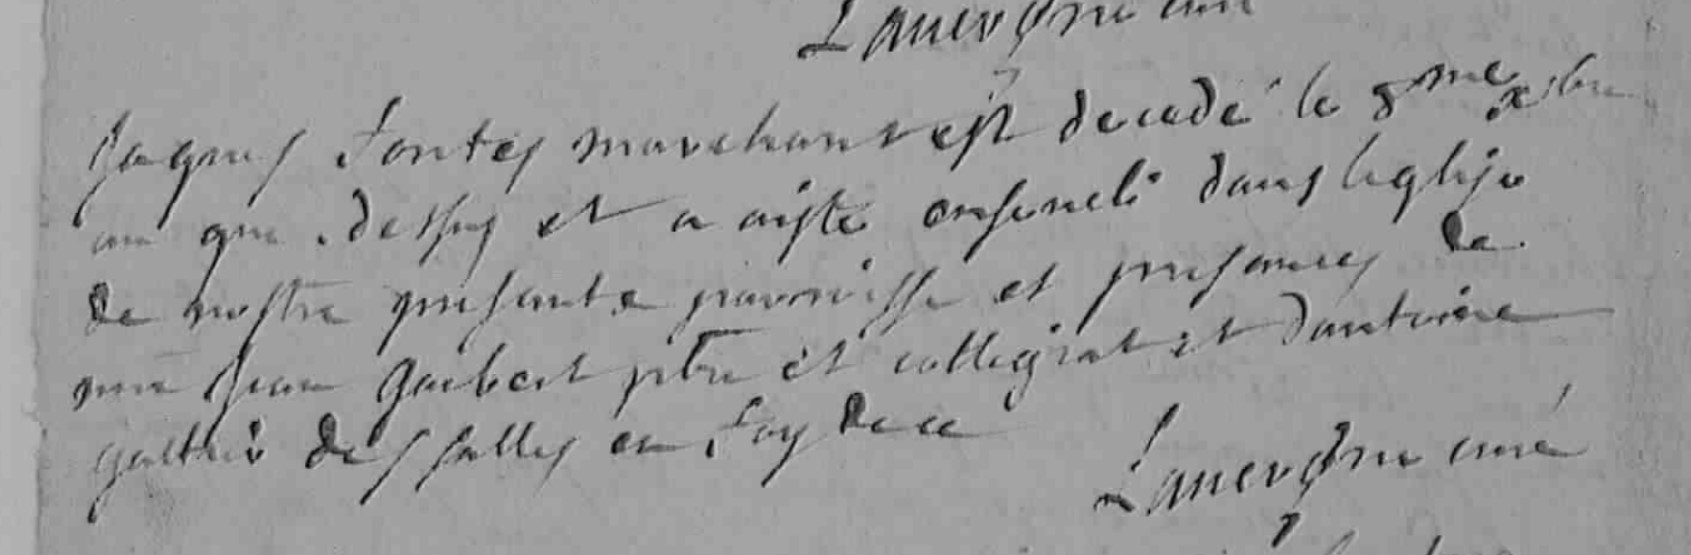 Lauvergne curé
Jaques Fontes marchant est decedé le 8me xbre
an que dessus et a aiste enseueli dans leglise
de nostre presante parroisse et presances de
me Jean Galbert ptre et collegiat et dantoine
galtié des salles en foy de ce
Lauvergne curé